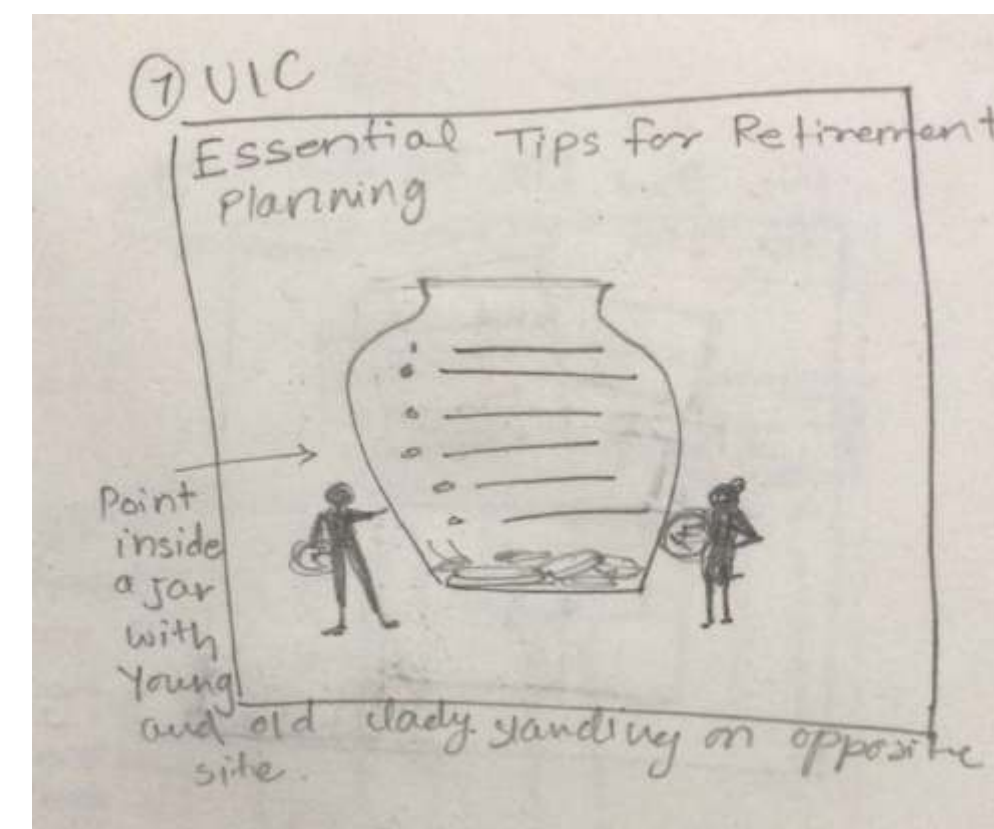 ① UIC
Essential Tips for Retirement
Planning
Point
inside
a Jar
with
Young
and old lady standing on opposite
site.